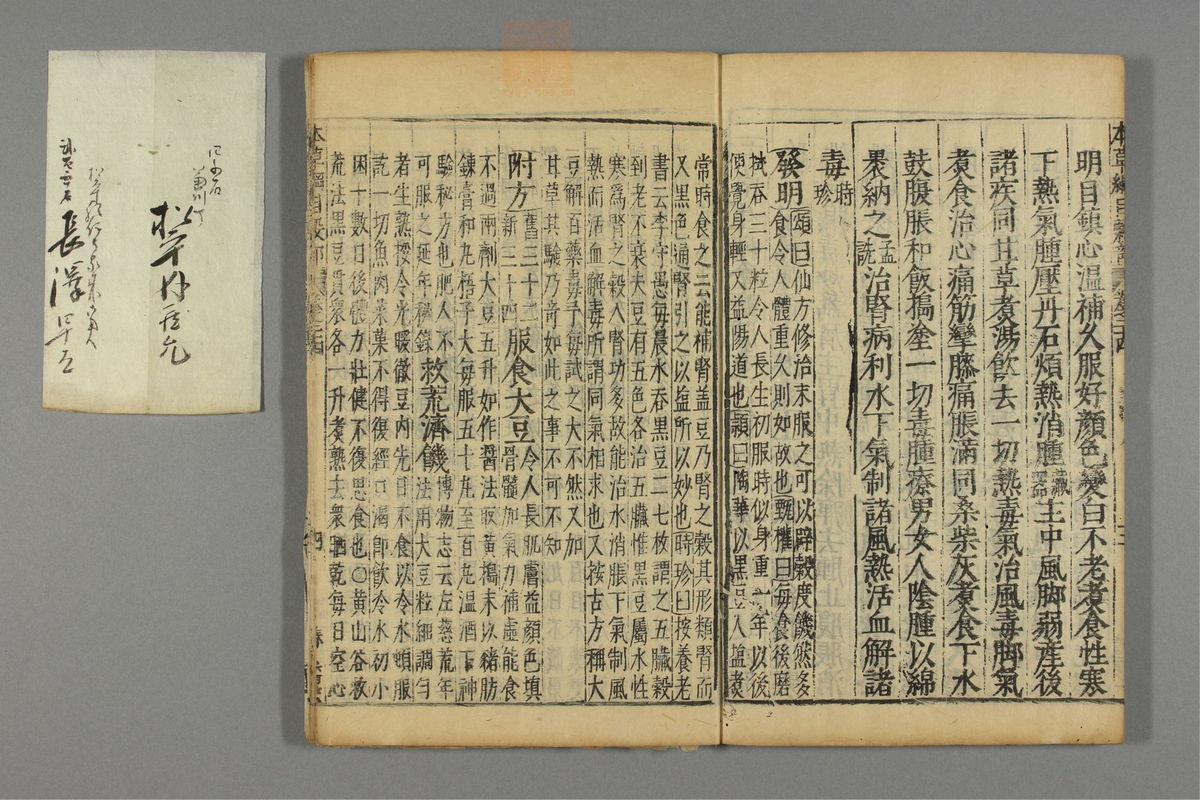 明目鎮心溫補久服好顔色變白不老煮食性寒
下熱氣腫壓丹石煩熱消腫藏器主中風脚弱産後
諸疾同甘草煮湯飲去一切熱毒氣治風毒脚氣
煮食治心痛筋攣膝痛脹滿同桑柴灰煮食下水
鼓腹脹和飯搗塗一切毒腫療男女人陰腫以綿
褁納之孟詵治腎病利水下氣制諸風熱活血解諸
毒時珍
發明頌曰仙方修治末服之可以辟穀度饑然多
食令人體重久則如故也甄權曰每食後磨
拭吞三十粒令人長生初服時似身重一年以後
便覺身輕又益陽道也頴曰陶華以黑豆入鹽煮
常時食之云能補腎盖豆乃腎之穀其形類腎而
又黑色通腎引之以鹽所以妙也時珍曰按養老
書云李守愚每晨水吞黑豆二七枚謂之五臟穀
到老不衰夫豆有五色各治五臟惟黑豆屬水性
寒爲腎之穀入腎功多故能治水消脹下氣制風
熱而活血解毒所謂同氣相求也又按古方稱大
豆解百藥毒予每試之大不然又加
甘草其驗乃奇如此之事不可不知
附方舊三十二新三十四服食大豆令人長肌膚益顔色填
骨髓加氣力補虛能食
不過兩劑大豆五升如作醬法取黃搗末以豬肪
鍊膏和丸梧子大每服五十丸至百丸溫酒下神
驗秘方也肥人不可服之延年秘錄救荒濟饑博物志云左慈荒年
法用大豆粒細調勻
者生熟挼令光暖徹豆內先日不食以冷水頓服
訖一切魚肉菜菓不得復經口渴即飲冷水初小
困十數日後體力壯健不復思食也○黃山谷救
荒法黑豆貫衆各一升煮熟去衆晒乾每日空心
長澤